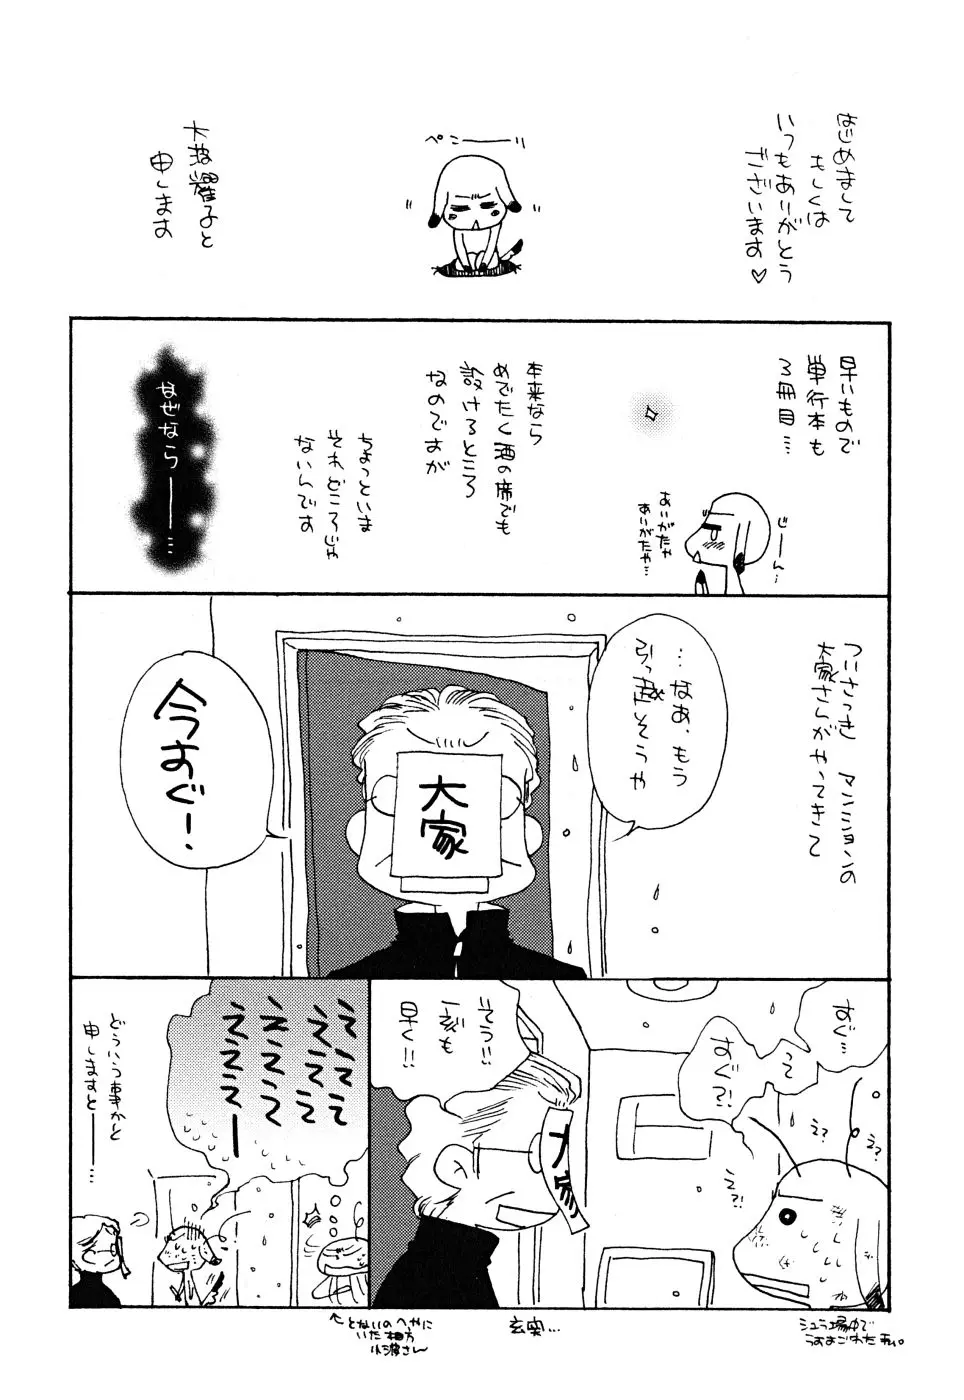 はじめまして
もしくは
いつもありがとう
ございます♡
ぺこーーーり
大波耀子と
申します
早いもので
単行本も
3冊目…
じーん…
ありがたや
ありがたや…
本来なら
めでたく酒の席でも
設けるところ
なのですが
ちょっといま
それどころじゃ
ないんです
なぜならーーー…
ついさっき マンションの
大家さんがやってきて
…なあ、もう
引っ越そうや
大家
今すぐ!
すぐ…
って
すぐ?!
え?
え?
え?!
え?!
そう!!
一秒も
早く!!
大家
ええええ
ええええ
ええええ
えええー
どういう事かと
申しますとーーー…
シュラ場中で
うすよごれた私。
玄関…
←とないのへやに
いた相方
小澤さん